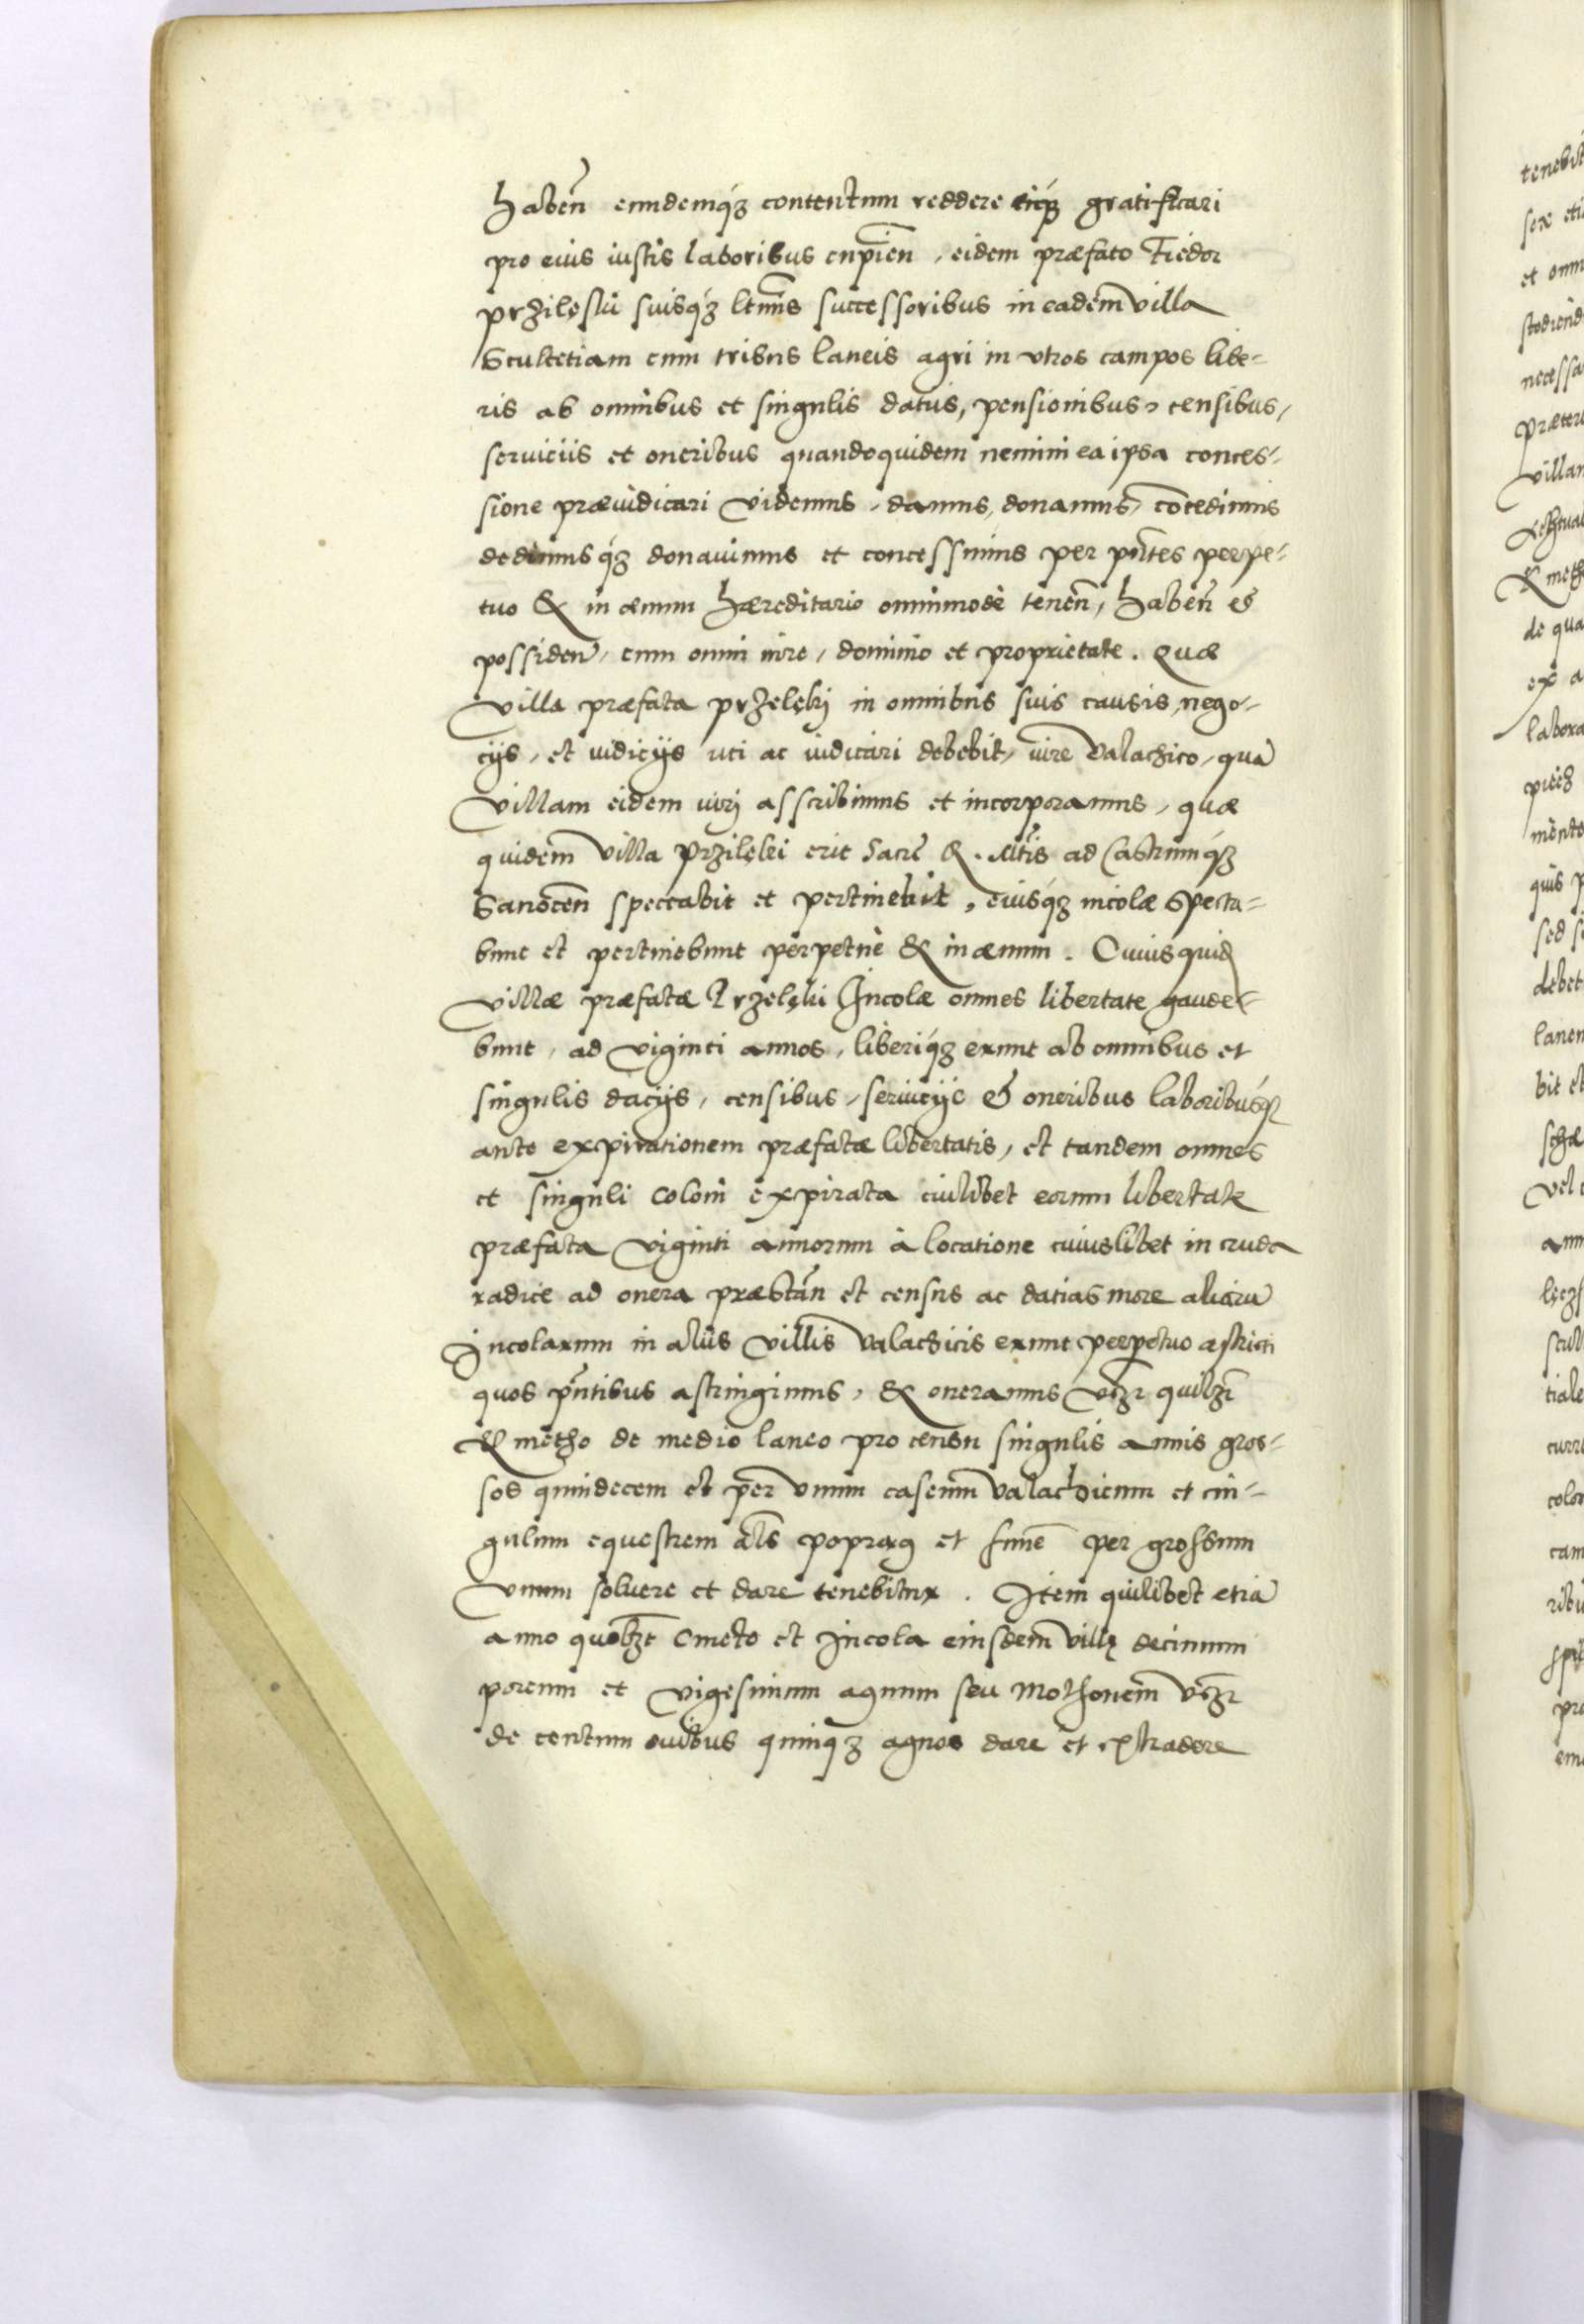 haben̄ eundemq́ꝫ contentum reddere eiq́ꝫ gratificari
pro eius iustis laboribus cupien̄, eidem præfato Fiedor
przilęski suisq́ꝫ ltimis successoribus in eadem villa
Scultetiam cum tribus laneis agri in vtros campos libe-
ris ab omnibus et singulis datiis, pensionibus, censibus,
seruiciis et oneribus quandoquidem nemini ea ipsa conces-
sione præiudicari videmus, damus, donamus, cōcedimus
dedimusq́ꝫ donauimus et concessimus per pn̄tes perpe-
tuo & in æuum hæreditario omnimodè tenen̄, haben̄ &
possiden̄, cum omni iure, dominio et proprietate. Quæ
villa præfata przelęki in omnibus suis causis, nego-
cijs, et iudicijs uti ac iudicari debebit, iure Valachico, quā
villam eidem iuri asscribimus et incorporamus, quæ
quidem villa przilęki erit Sacræ R. Mtis ad Castrumq́ꝫ
Sanocen̄ spectabit et pertinebit, eiusq́ꝫ incolæ specta-
bunt et pertinebunt perpetuè & in æuum. Cuius quid
villæ præfatæ Przelęki Incolæ omnes libertate gaude-
bunt, ad viginti annos, liberiq́ꝫ erunt ab omnibus et
singulis dacijs, censibus, seruicijs & oneribus laboribusq́ꝫ
ante expirationem præfatæ libertatis, et tandem omnes
et singuli coloni expirata cuilibet eorum libertate
præfata viginti annorum à locatione cuiuslibet in cruda
radice ad onera præstan̄ et census ac datias more aliorū
Incolarum in aliis villis valachicis erunt perpetuo astricti
quos pn̄tibus astringimus, & oneramus vꝫ quilꝫ
Kmetho de medio laneo pro censu singulis annis gros-
sos quindecem et per vnum caseum valachicum et cin-
gulum equestrem als poprąg et funē per grossum
vnum soluere et dare tenebitur. Item quilibet etiā
anno quolꝫt Cmeto et Incola eiusdem villę decimum
porcum et vigesimum agnum seu Mothonem vꝫ
de centum ouibus quinqꝫ agnos dare et extradere